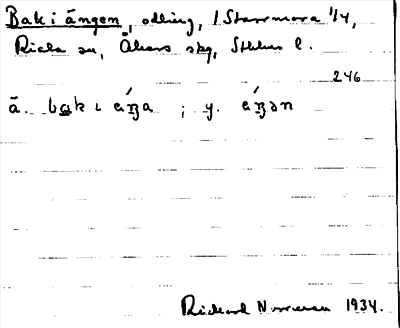 Bak i ängen, odling, 1 Starrmora 1/4,
Riala sn, Åkers skg, Sthlms l.
246
ä. bak ɩ áŋa ; y. áŋən
Richard 1934.